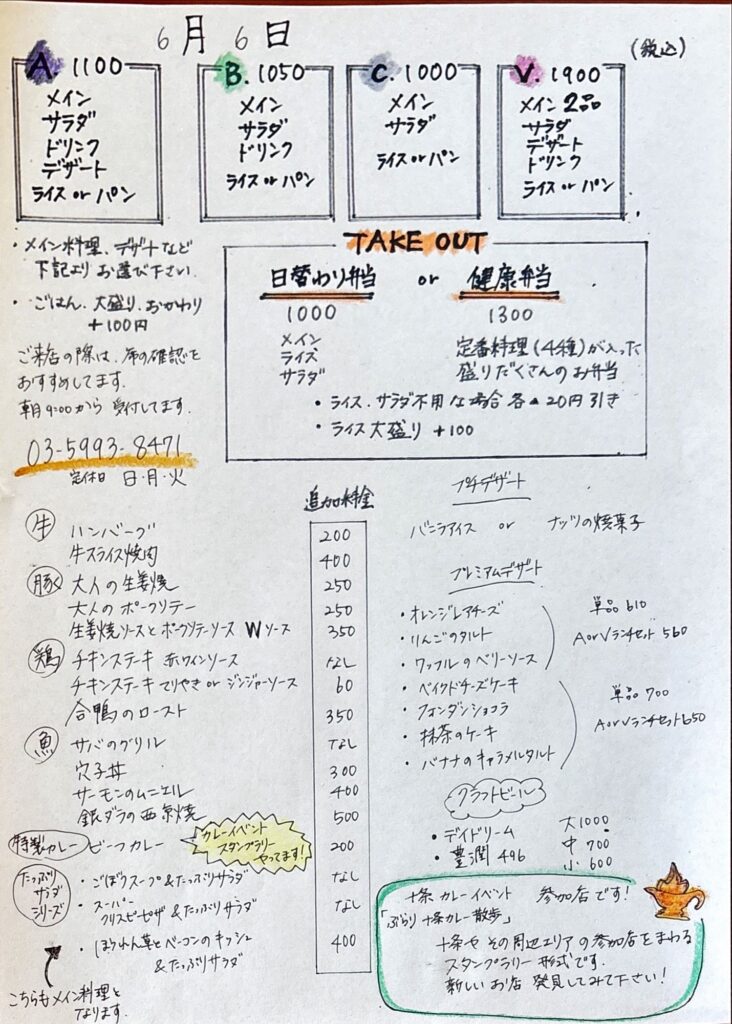 6月6日
(税込)
A. 1100
メイン
サラダ
ドリンク
デザート
ライス or パン
B. 1050
メイン
サラダ
ドリンク
ライス or パン
C. 1000
メイン
サラダ
ライス or パン
V. 1900
メイン 2品
サラダ
デザート
ドリンク
ライス or パン
・メイン料理、デザートなど
下記より お選び下さい。
・ごはん、大盛り、おかわり
+100円
ご来店の際は、席の確認を
おすすめしてます。
朝9:00から 受付してます。
03-5993-8471
定休日 日・月・火
TAKE OUT
日替わり弁当 or 健康弁当
1000
メイン
ライス
サラダ
1300
定番料理(4種)が入った
盛りだくさんのお弁当
・ライス、サラダ不用な場合 各▲20円引き
・ライス大盛り +100
追加料金
牛 ハンバーグ 200
牛スライス焼肉 400
豚 大人の生姜焼 250
大人の ポークソテー 250
生姜焼ソースとポークソテーソース Wソース 350
鶏 チキンステーキ 赤ワインソース なし
チキンステーキ てりやき or ジンジャーソース 60
合鴨のロースト 350
魚 サバのグリル なし
穴子丼 300
サーモンのムニエル 400
銀ダラの西京焼 500
特製カレー ビーフカレー 200
カレーイベント
スタンプラリー
やってます!
たっぷり
サラダ
シリーズ
・ごぼうスープ&たっぷりサラダ なし
・スーパー
クリスピーピザ&たっぷりサラダ なし
・ほうれん草とベーコンのキッシュ
&たっぷりサラダ 400
こちらもメイン料理と
なります。
プチデザート
バニラアイス or ナッツの焼菓子
プレミアムデザート
・オレンジレアチーズ
・りんごのタルト
・ワッフルのベリーソース
単品 610
AorVランチセット 560
・ベイクドチーズケーキ
・フォンダンショコラ
・抹茶のケーキ
・バナナのキャラメルタルト
単品 700
AorVランチセット 650
クラフトビール
・デイドリーム
・豊潤 496
大 1000
中 700
小 600
十条 カレーイベント 参加店です!
「ぶらり十条カレー散歩」
十条や その周辺エリアの参加店をまわる
スタンプラリー形式です。
新しいお店 発見してみて下さい!